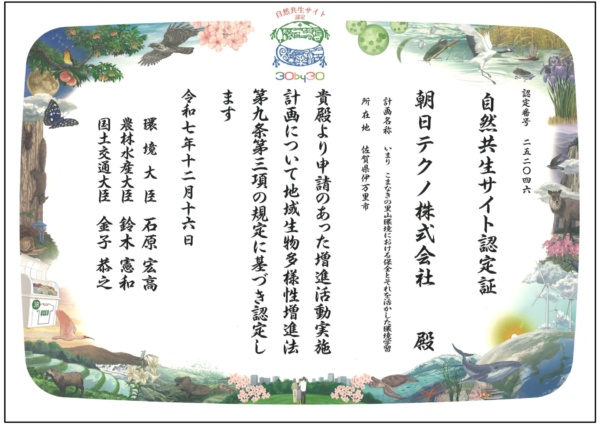 自然共生サイト
認定
30by30
認定番号 二五二〇四六
自然共生サイト認定証
朝日テクノ株式会社 殿
計画名称 いまり こまなきの里山環境における保全とそれを活かした環境学習
所在地 佐賀県伊万里市
貴殿より申請のあった増進活動実施
計画について地域生物多様性増進法
第九条第三項の規定に基づき認定し
ます
令和七年十二月十六日
環境大臣 石原宏高
農林水産大臣 鈴木憲和
国土交通大臣 金子恭之